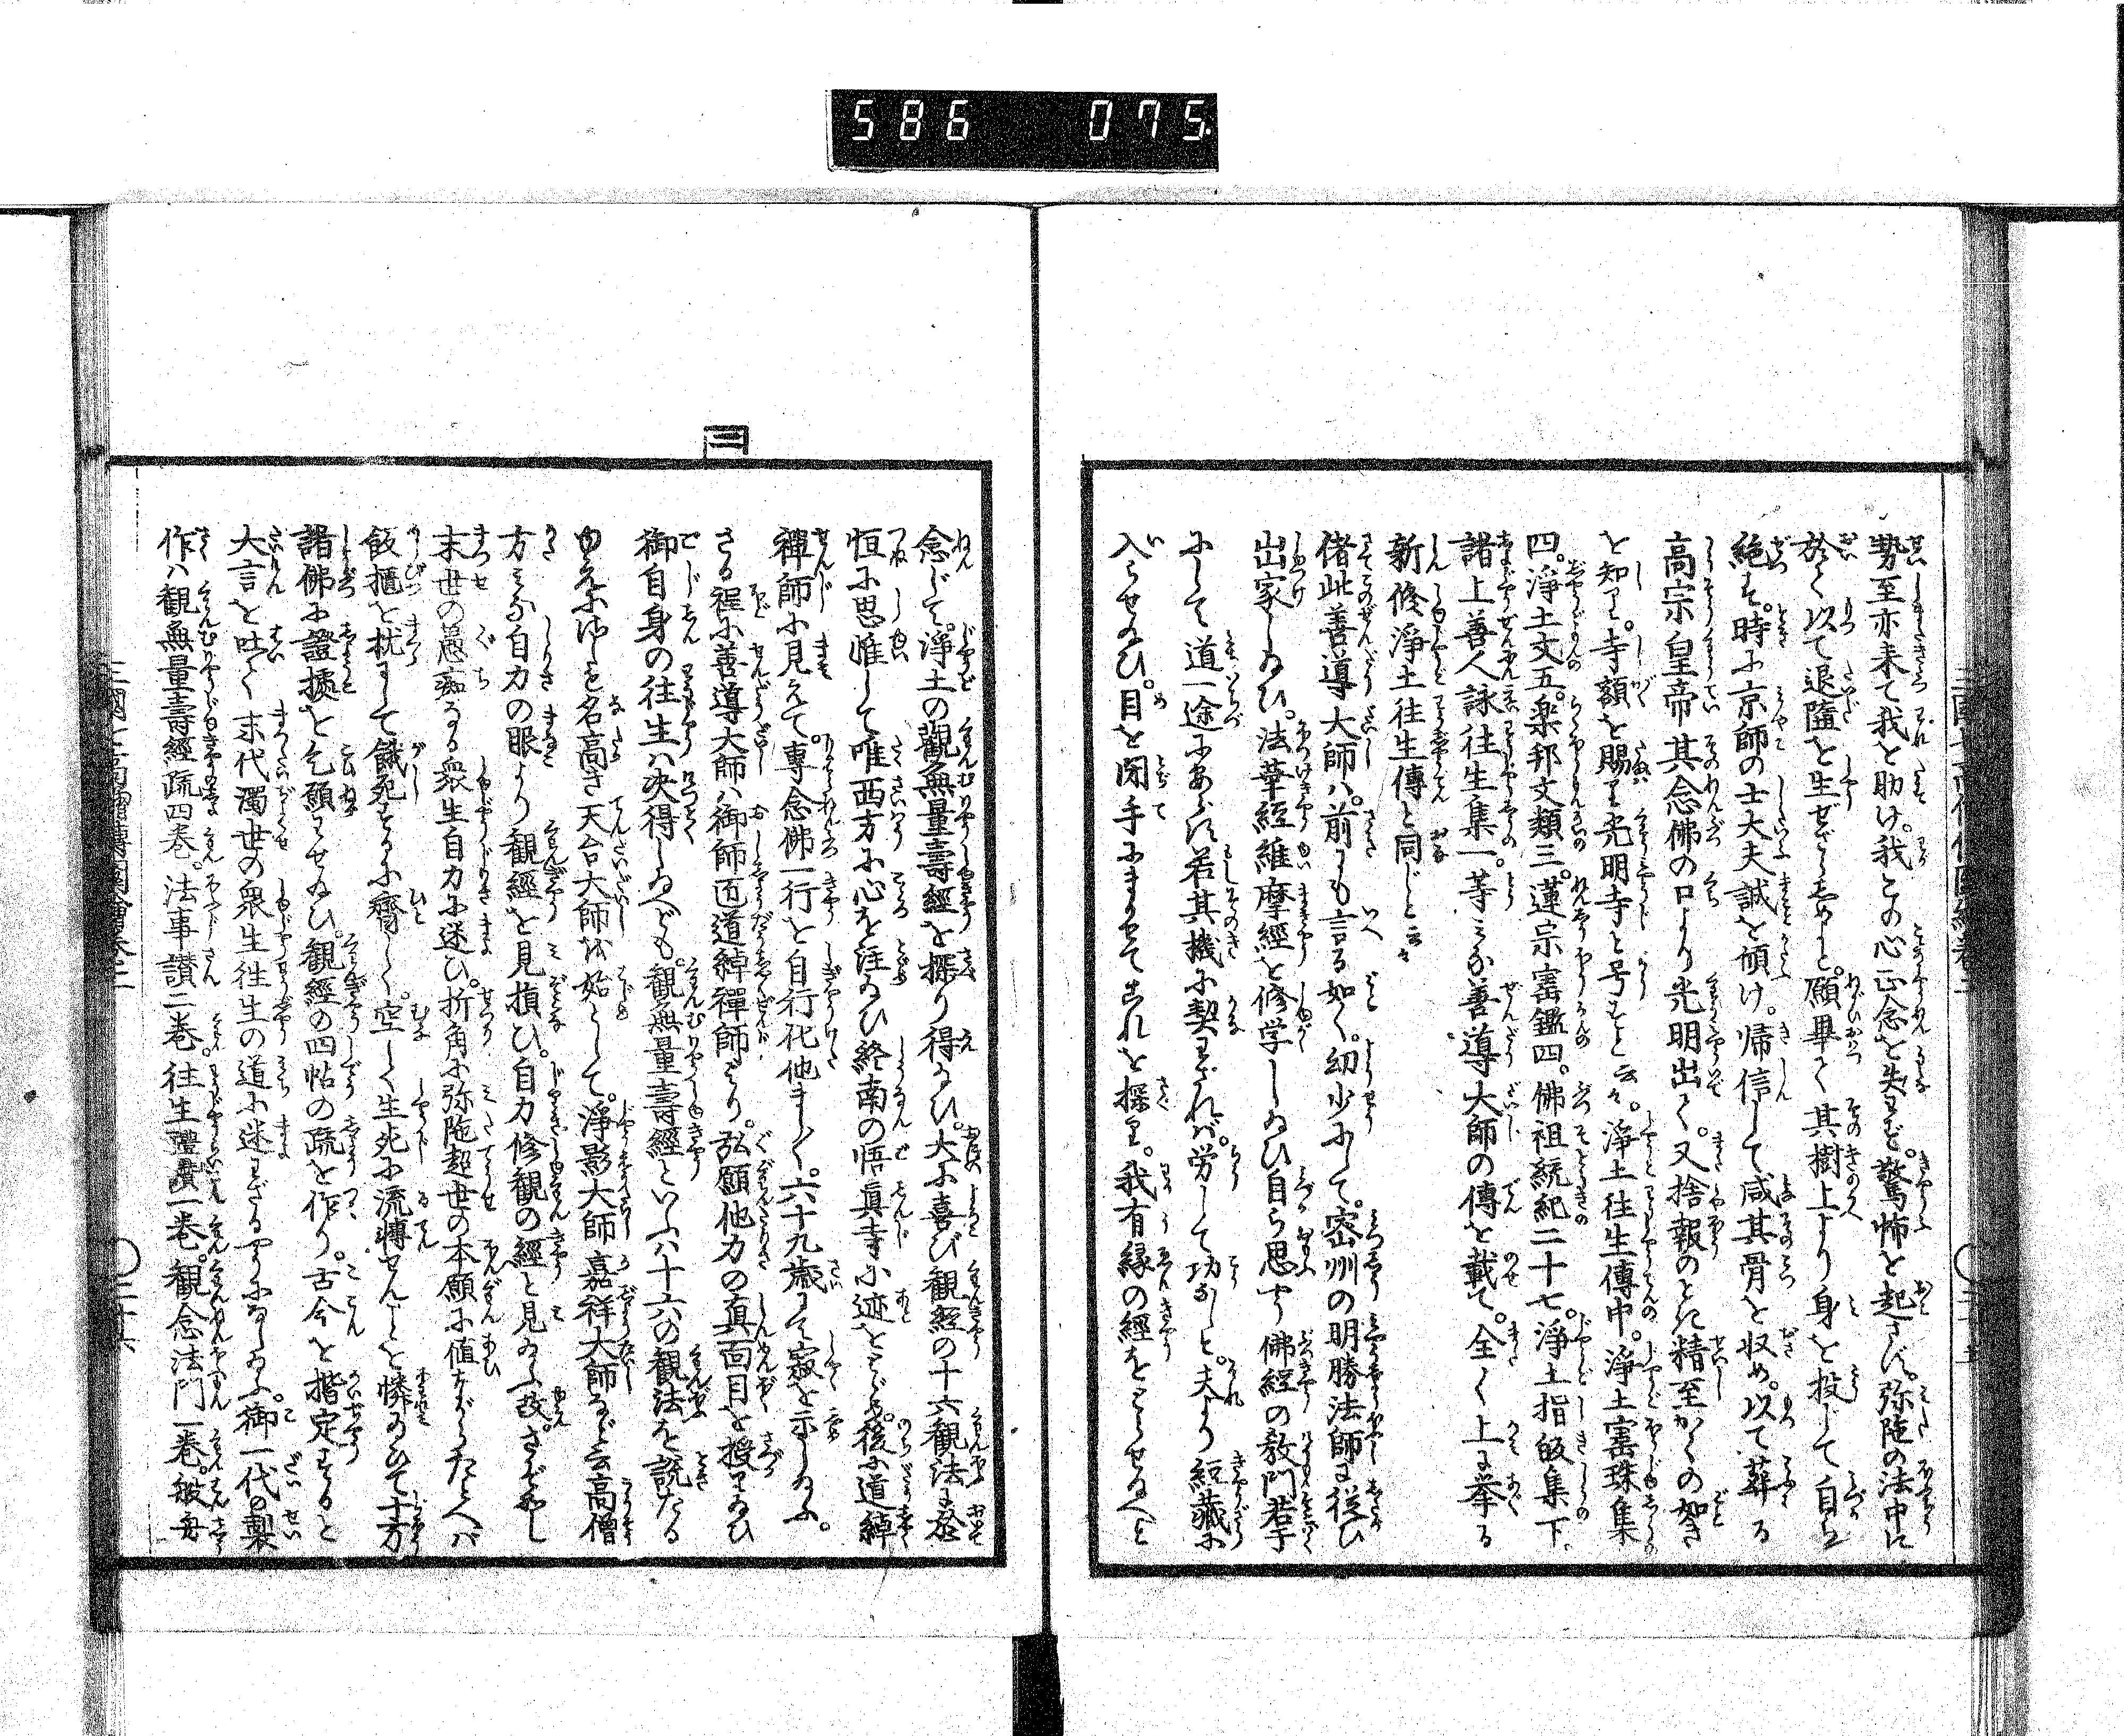 586 075
勢至亦来て我を助け。我この心正念を失はず。驚怖を起さず。弥陀の法中に
於て以て退隨を生ぜざらしめと。願畢て其樹上より身を投じて自ら
絶す。時に京師の士大夫誠を傾け。帰信して咸其骨を収め。以て葬る
高宗皇帝其念佛の口より光明出て。又捨報のとき精至かくの如き
を知り。寺額を賜り光明寺と号すと云々。淨土往生傳中。淨土寳珠集
四。淨土文五。楽邦文類三。蓮宗寳鑑四。佛祖統紀二十七。淨土指皈集下。
諸上善人詠往生集一。等みな善導大師の傳を載て。全く上に挙る
新修淨土往生傳と同じと云々
偖此善導大師ハ。前にも言る如く。幼少にして。密州の明勝法師に従ひ
出家し給ひ。法華經維摩經を修学し給ひ自ら思すやう佛經の教門若干
にして道一途にあらず若其機に契はざれバ。労して功なしと。夫より經藏に
入らせ給ひ。目を閉手にまかせてこれを探り。我有縁の經をとらせ給へと
念じて。淨土の觀無量壽經を探り得給ひ。大に喜び観經の十六観法に丞
恒に思惟して唯西方に心を注給ひ終南の悟眞寺に迹をとゞめ。後に道綽
禪師に見えて。専念佛一行を自行化他まし〳〵。六十九歳にて寂を示し給ふ。
さる程に善導大師ハ御師匠道綽禪師より。弘願他力の真面目を授り給ひ
御自身の往生ハ決得し給へども。観無量壽經といふハ十六の観法を説たる
ゆえにゆしき名高き天台大師を始として。淨影大師嘉祥大師など云高僧
方みな自力の眼より観經を見損ひ。自力修観の經と見給ふ故。さぞやし
末世の愚痴なる衆生自力に迷ひ。折角に弥陀超世の本願に値ながらたとへバ
飯櫃を枕にして餓死するに齊しく。空しく生死に流轉せんことを憐給ひて十方
諸佛に證據を乞願はせ給ひ。観經の四帖の疏を作り。古今を揩定すると
大言を吐て末代濁世の衆生往生の道に迷はざるやうになし給ふ。御一代の製
作ハ観無量壽經疏四巻。法事讃二巻。往生禮讃一巻。観念法門一巻。般舟
三國七高僧傳圖會巻三